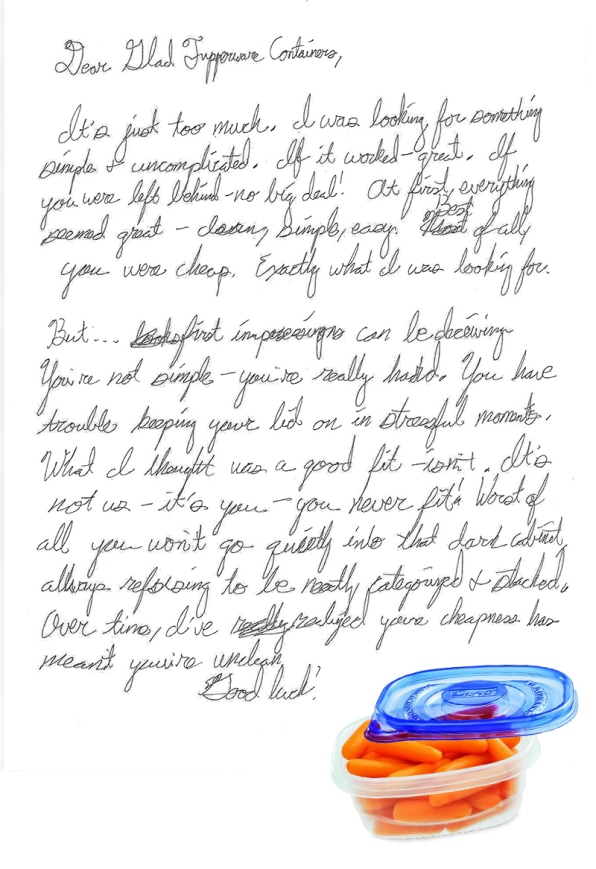 Dear Glad Tupperware Containers,
It's just too much. I was looking for something
simple & uncomplicated. If it worked - great. If
you were left behind - no big deal! At first, everything
seemed great - clean, simple, easy. Best of all,
you were cheap. Exactly what I was looking for.
But... first impressions can be deceiving
You're not simple - you're really hard. You have
trouble keeping your lid on in stressful moments.
What I thought was a good fit - isn't. It's
not us - it's you - you never fit! Worst of
all you won't go quietly into that dark cabinet,
always refusing to be neatly categorized & stacked.
Over time, I've realized your cheapness has
meant you're unclean
Good luck!